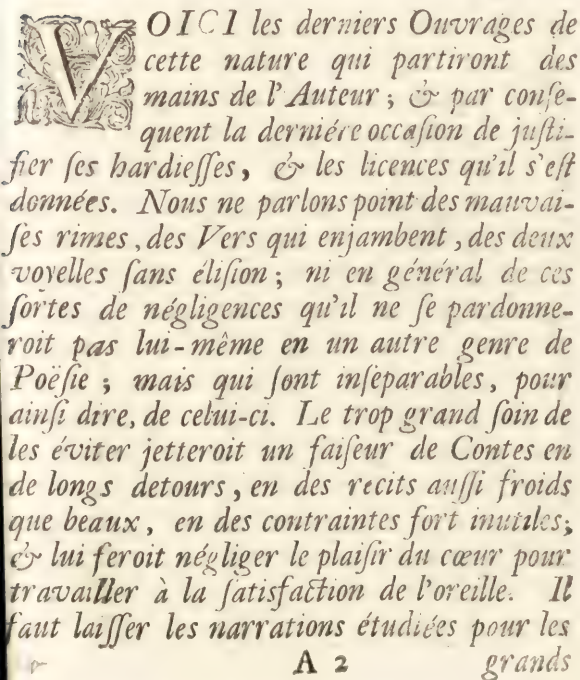 VOICI les derniers Ouvrages de
cette nature qui partiront des
mains de l'Auteur; & par conſe-
quent la derniére occaſion de juſti-
fier ſes hardieſſes, & les licences qu'il s'eſt
données. Nous ne parlons point des mauvai-
ſes rimes, des Vers qui enjambent, des deux
voyelles ſans éliſion; ni en général de ces
ſortes de négligences qu'il ne ſe pardonne-
roit pas lui-même en un autre genre de
Poëſie; mais qui ſont inſéparables, pour
ainſi dire, de celui-ci. Le trop grand ſoin de
les éviter jetteroit un faiſeur de Contes en
de longs detours, en des recits auſſi froids
que beaux, en des contraintes fort inutiles;
& lui feroit négliger le plaiſir du cœur pour
travailler à la ſatisfaction de l'oreille. Il
faut laiſſer les narrations étudiées pour les
A 2 grands